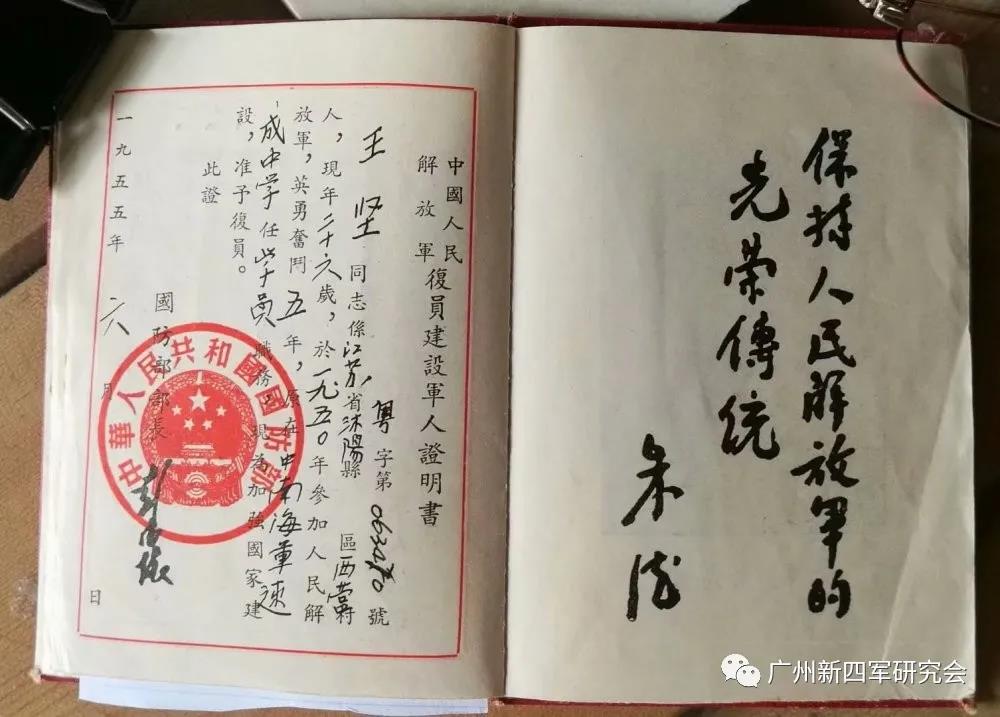 保持人民解放軍的
光荣傳统
朱德
中國人民
解放軍
復員建設軍人證明書
粤字第 號
王坚同志係江苏省沐陽縣 區西
人，現年二十六歲，於一九五〇年參加人民解
放軍，英勇奮鬥五年，原在中南海軍速
成中学任学员職務，現為加強國家建
設，准予復員。
此證
國防部部長
彭德懷
一九五五年六月 日
中華人民共和國國防部
广州新四军研究会